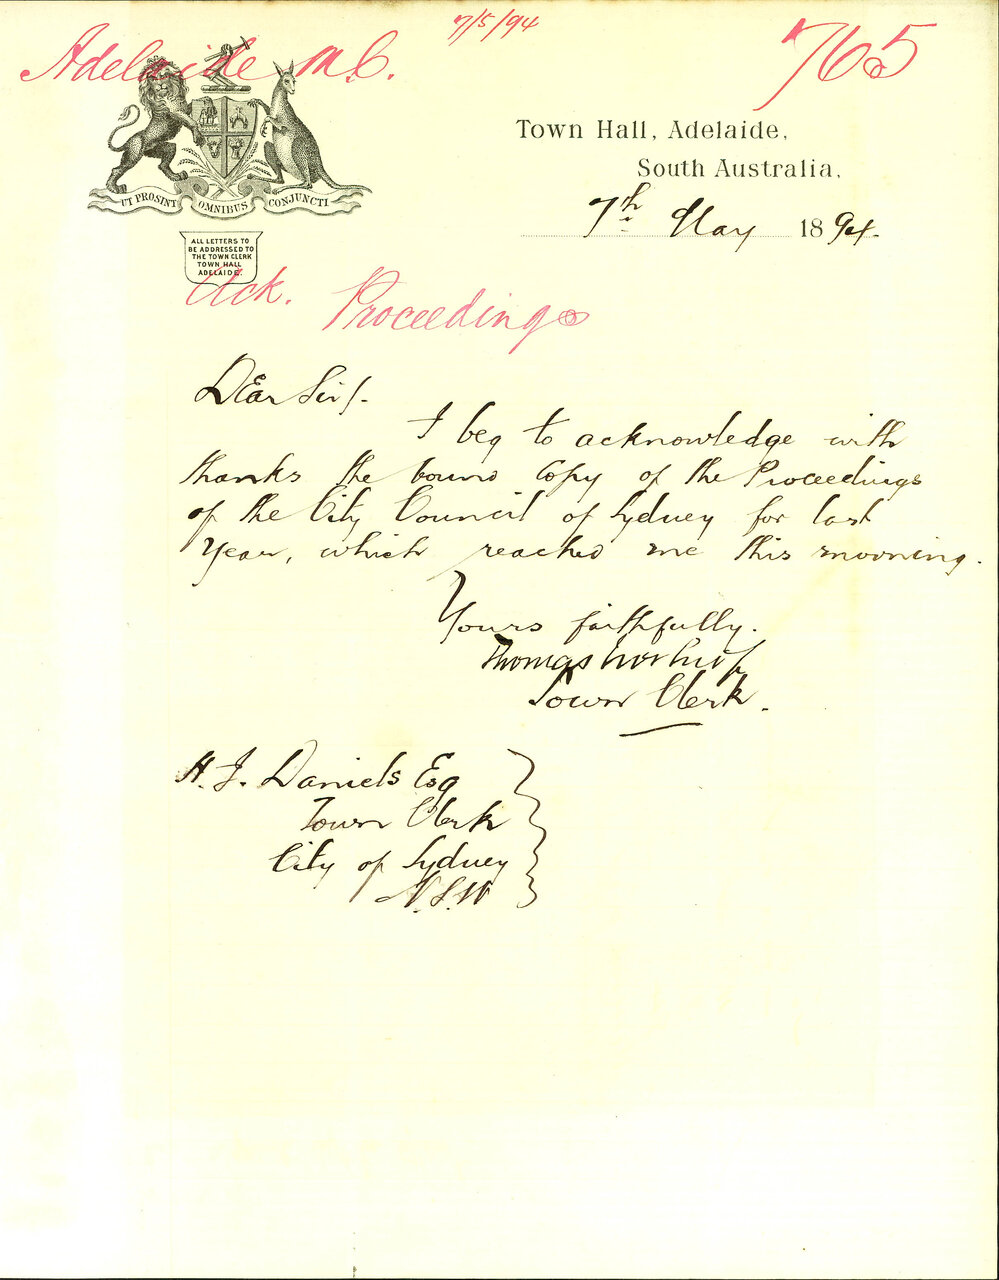 7/5/94
Adelaide M.C.
765
Town Hall, Adelaide,
South Australia,
7th May 1894.
UT PROSINT OMNIBUS CONJUNCTI
ALL LETTERS TO
BE ADDRESSED TO
THE TOWN CLERK
TOWN HALL
ADELAIDE.
Ack. Proceedings
Dear Sir/.
I beg to acknowledge with
thanks the bound copy of the Proceedings
of the City Council of Sydney for last
Year, which reached me this morning.
Yours faithfully.
Thomas Worsnop
Town Clerk.
H. J. Daniels Esq
Town Clerk
City of Sydney
N.S.W